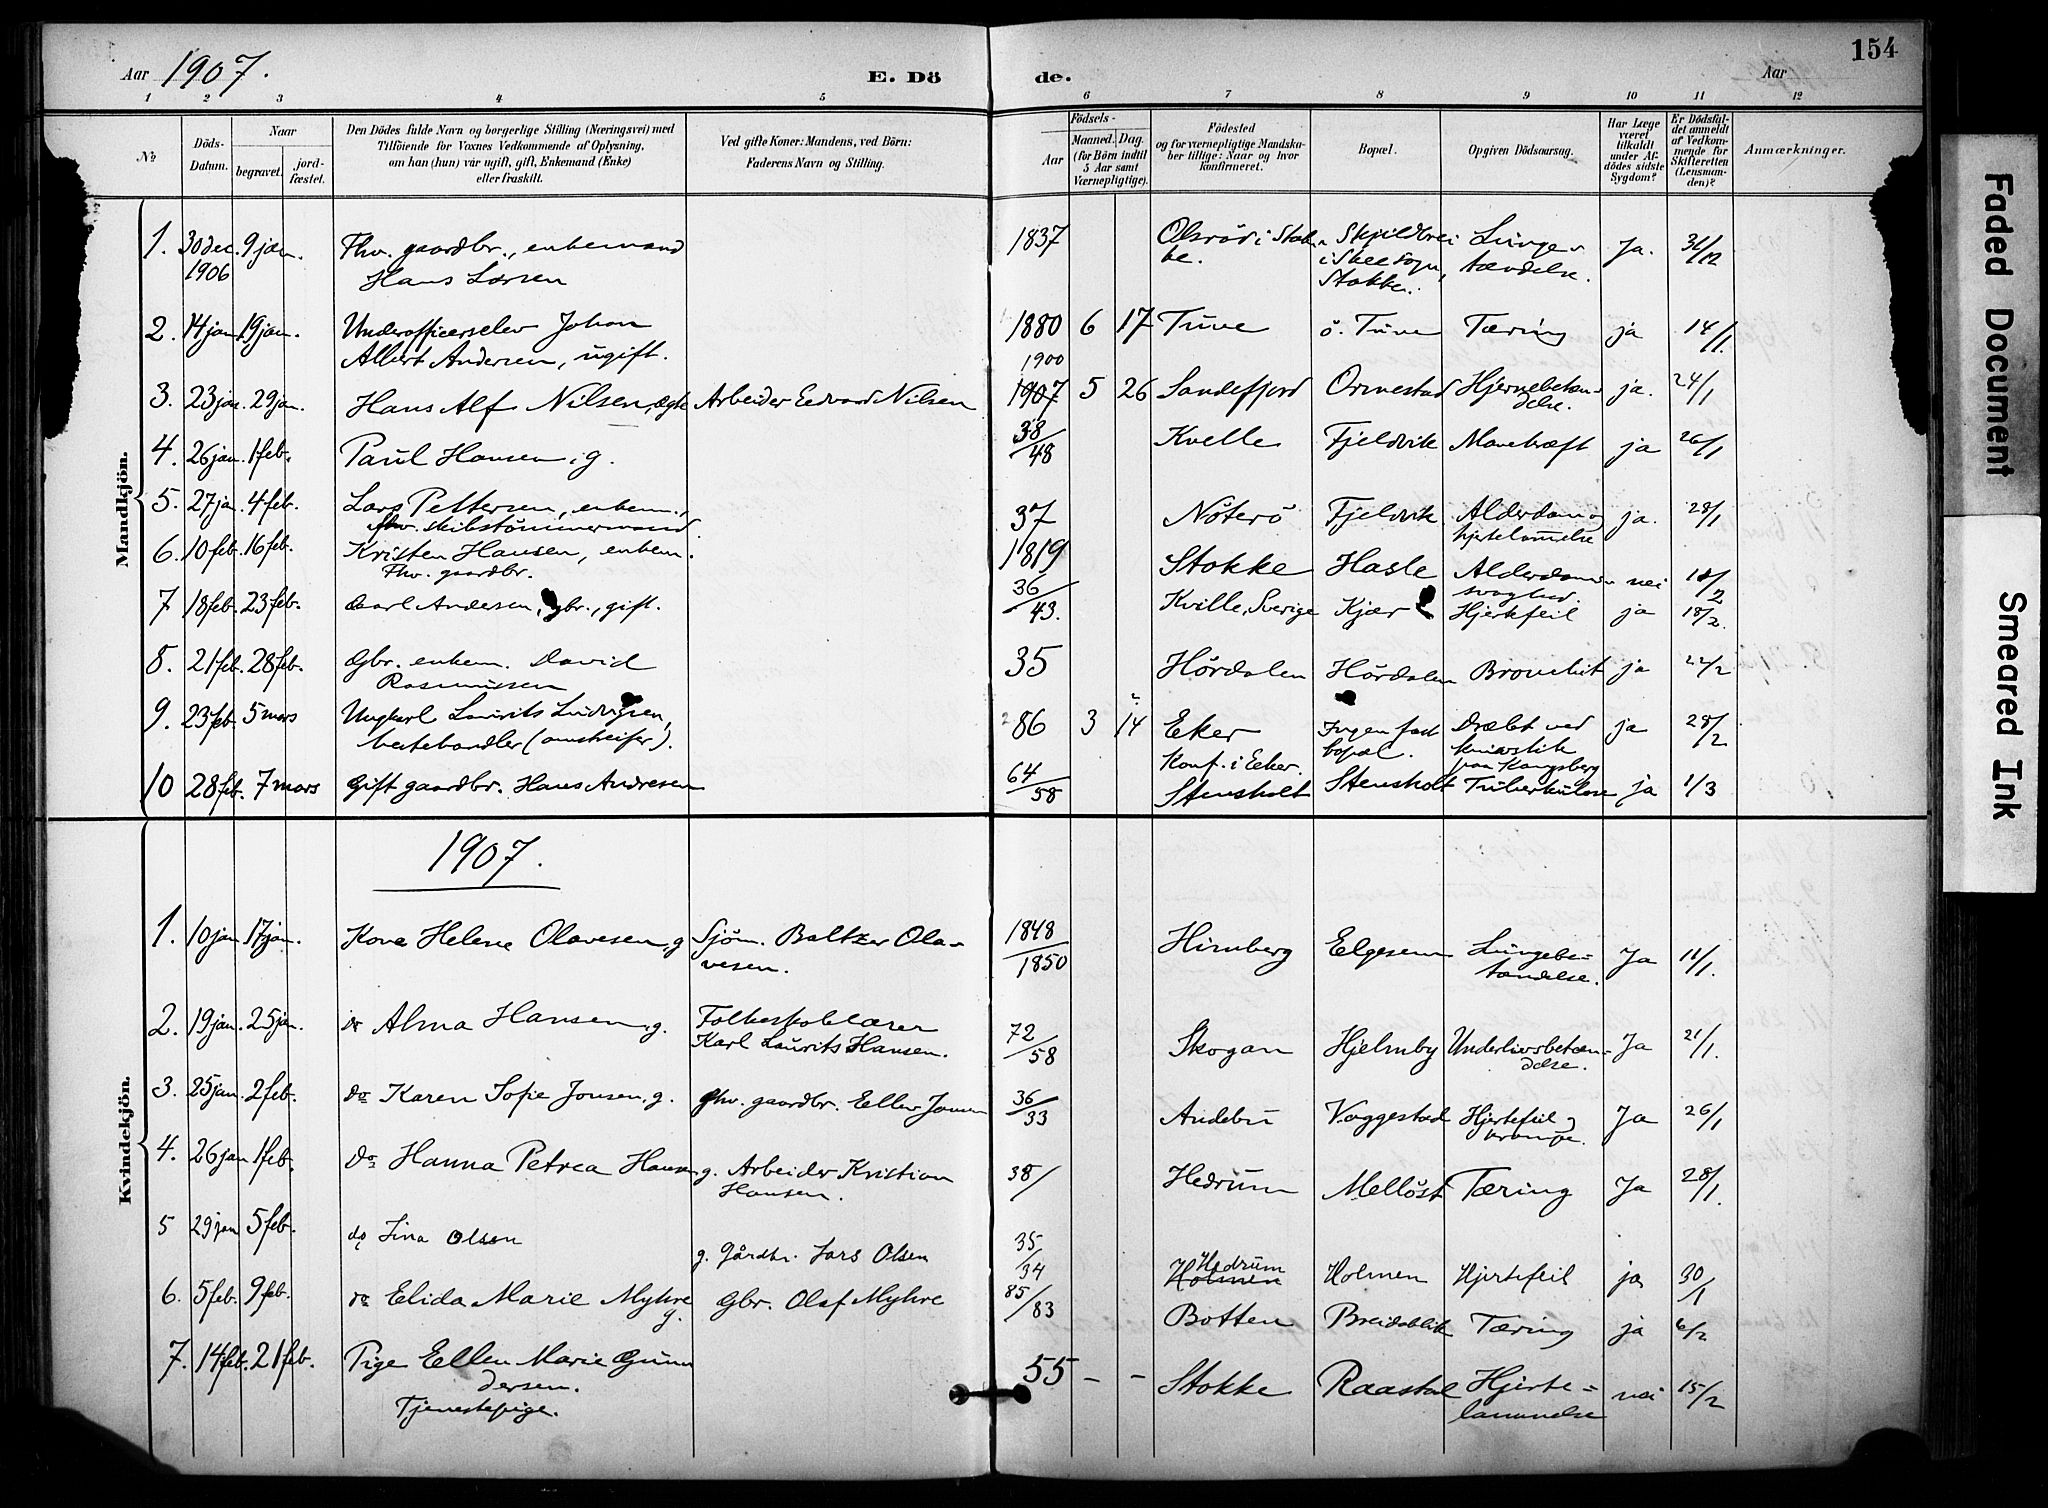 154
Aar 1907. E. Döde. Aar
1 2 3 4 5 6 7 8 9 10 11 12
No
Döds-Datum.
Naar
begravet. jordfæstet.
Den Dödes fulde Navn og borgerlige Stilling (Næringsvei) med
Tilföiende for Voxnes Vedkommende af Oplysning,
om han (hun) var ugift, gift, Enkemand (Enke)
eller fraskilt.
Ved gifte Koner: Mandens, ved Börn:
Faderens Navn og Stilling.
Födsels-
Aar Maaned. Dag.
(for Börn indtil
5 Aar samt
Værnepligtige).
Födested
og for værnepligtige Mandska-
ber tillige: Naar og hvor
konfirmeret.
Bopæl.
Opgiven Dödsaarsag.
Har Læge
været
tilkaldt
under Af-
dödes sidste
Sygdom?
Er Dödsfal-
det anmeldt
af Vedkom-
mende for
Skifteretten
(Lensman-
den)?
Anmærkninger.
Mandkjön.
1. 30 dec. 9 jan. Fhv. gaardbr., enkemand 1837 Olsröd i Stok- Skjildbrei Lunge- Ja. 31/12
1906 Hans Larsen ke. i Skee sogn, tændelse.
Stokke.
2. 14 jan 19 jan. Underofficerselev Johan 1880 6 17 Tuve ö. Tuve Tæring ja 14/1.
Albert Andersen, ugift. 1900
3. 23 jan. 29 jan. Hans Alf Nilsen, ægte Arbeider Edvard Nilsen 1907 5 26 Sandefjord Ormestad Hjernebetæn- ja. 24/1
delse.
4. 26 jan. 1 feb. Paul Hansen, g. 38/48 Kvelle Fjeldvik Mavekræft ja 26/1
5. 27 jan 4 feb. Lars Pettersen, enkem., 37 Nöterö Fjeldvik Alderdom ja. 28/1
fhv. skibstömmermand. hjertelammelse
6. 10 feb. 16 feb. Kristen Hansen, enkem. 1819 Stokke Hasle Alderdoms- nei 18/2
Fhv. gaardbr. svaghed.
7 18 feb. 23 feb. Carl Andersen, gbr., gift. 36/43. Kville, Sverige Kjær Hjertefeil ja 18/2.
8. 21 feb. 28 feb. Gbr. enkem. David 35 Hördalen Hördalen Bronchit ja 22/2
Rasmussen
9. 23 feb. 5 mars Ungkarl Laurits Ludvigsen, 86 3 14 Eker Ingen fast Dræbt ved ja 28/2
hestehandler (omstreifer). Konf. i Eker. bopæl. knivstik
paa Kongsberg
10 28 feb. 7 mars Gift gaardbr. Hans Andresen 64/58 Stensholt Stensholt Tuberkulose ja 1/3
1907.
Kvindekjön.
1. 10 jan 17 jan. Kone Helene Olavesen, g Sjöm. Baltzer Ola- 1848/1850 Himberg Elgesem Lungebe- Ja 11/1.
vesen. tændelse.
2. 19 jan. 25 jan. do Alma Hansen, g. Folkeskolelærer 72/58 Skogan Hjelmby Underlivsbetæn- Ja 21/1.
Karl Laurits Hansen. delse.
3. 25 jan. 2 feb. do Karen Sofie Jonsen, g. fhv. gaardbr. Ellev Jonsen 36/33 Andebu Voggestad Hjertefeil Ja 26/1
krampe.
4. 26 jan 1 feb. do Hanna Petrea Hansen g. Arbeider Kristian 38/ Hedrum Mellöst Tæring Ja 28/1.
Hansen.
5 29 jan 5 feb. do Lina Olsen g. Gårdbr. Lars Olsen 35/34 Hedrum Holmen Holmen Hjertefeil ja 30/1
6. 5 feb. 9 feb. do Elida Marie Myhre g. Gbr. Olaf Myhre 85/83 Botten Breidablik Tæring ja 6/2
7. 14 feb. 21 feb. Pige Ellen Marie Gun- 55 - - Stokke Raastad Hjerte- nei 15/2
dersen. lammelse
Tjenestepige.
Faded Document
Smeared Ink